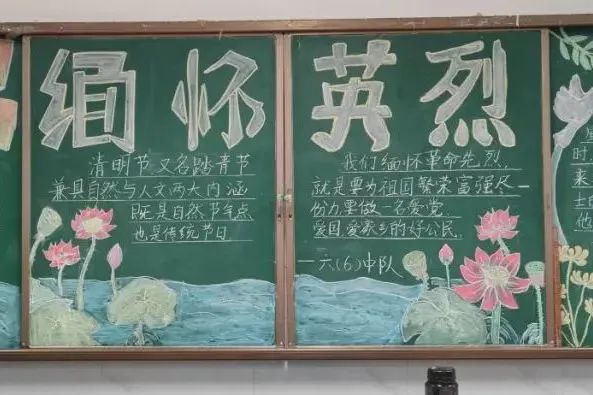 缅怀英烈
清明节又名踏青节
兼具自然与人文两大内涵
既是自然节气点
也是传统节日
我们缅怀革命先烈,
就是要为祖国繁荣富强尽一
份力要做一名爱党
爱国爱家乡的好公民.
—六(6)中队
时,
来
士的
他